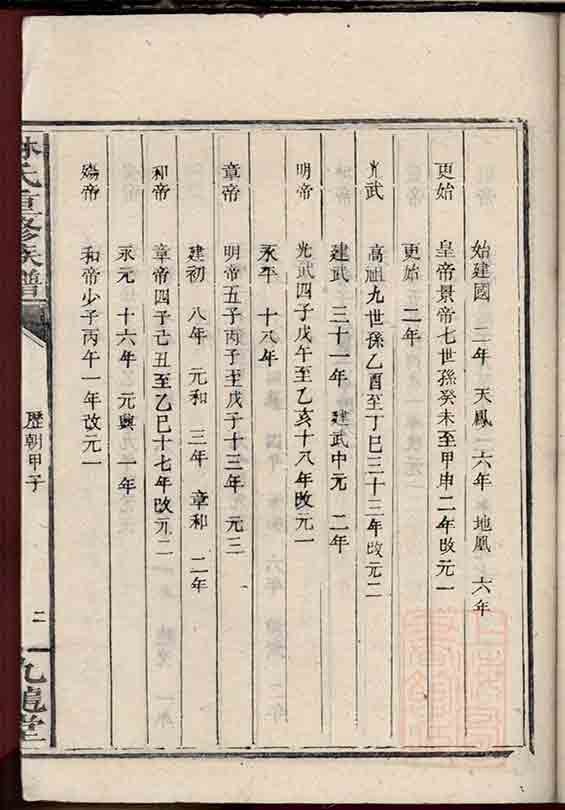 始建國 二年 天鳳 六年 地鳳 六年
更始 皇帝景帝七世孫癸未至甲申二年改元一
更始 二年
光武 高祖九世孫乙酉至丁巳三十三年改元二
建武 三十一年 建武中元 二年
明帝 光武四子戊午至乙亥十八年改元一
永平 十八年
章帝 明帝五子丙子至戊子十三年 元三
建初 八年 元和 三年 章和 二年
和帝 章帝四子己丑至乙巳十七年改元二
永元 十六年 元興 一年
殤帝 和帝少子丙午一年改元一
林氏重修族譜
歷朝甲子
二
九龍堂